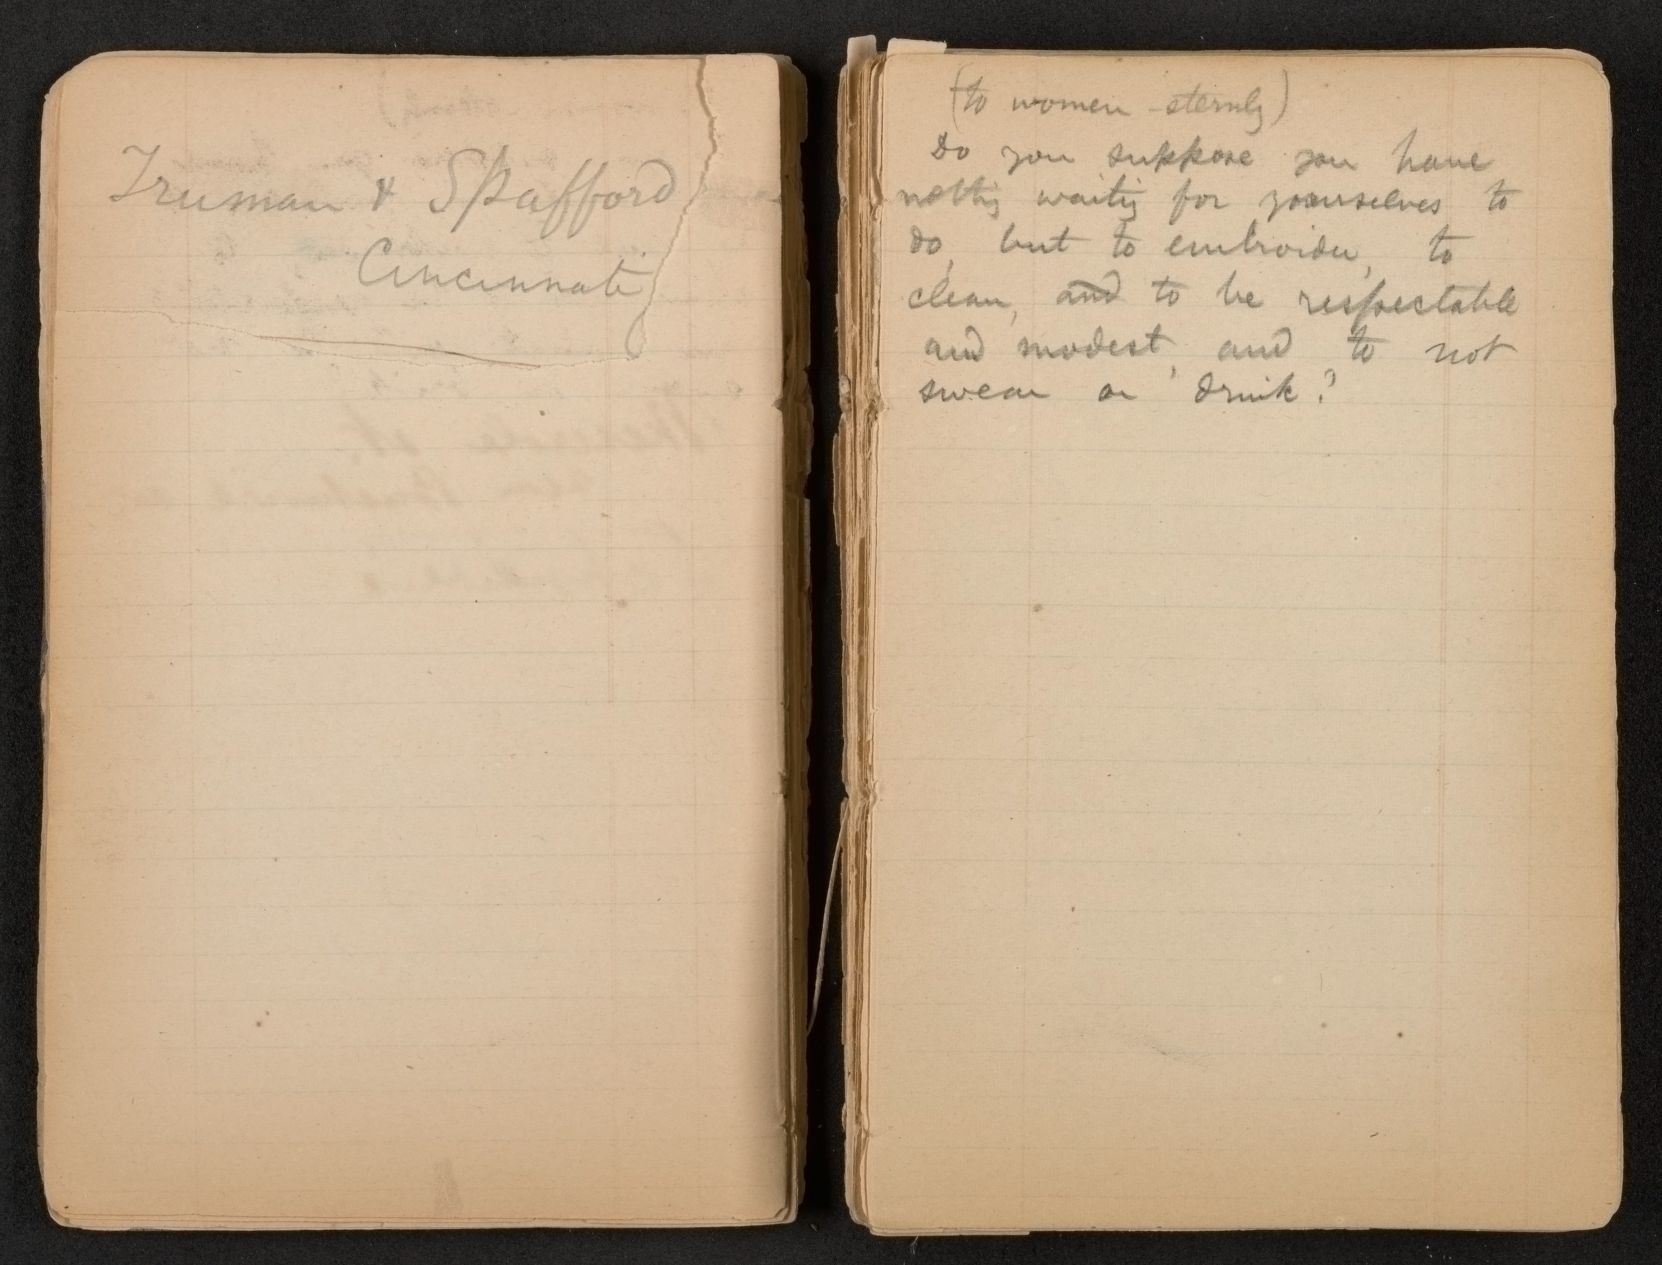 Truman & Spafford
Cincinnati
(to women sternly)
Do you suppose you have
nothig waitig for yourselves to
do, but to embroider, to
clean, and to be respectable
and modest, and to not
swear or drink?